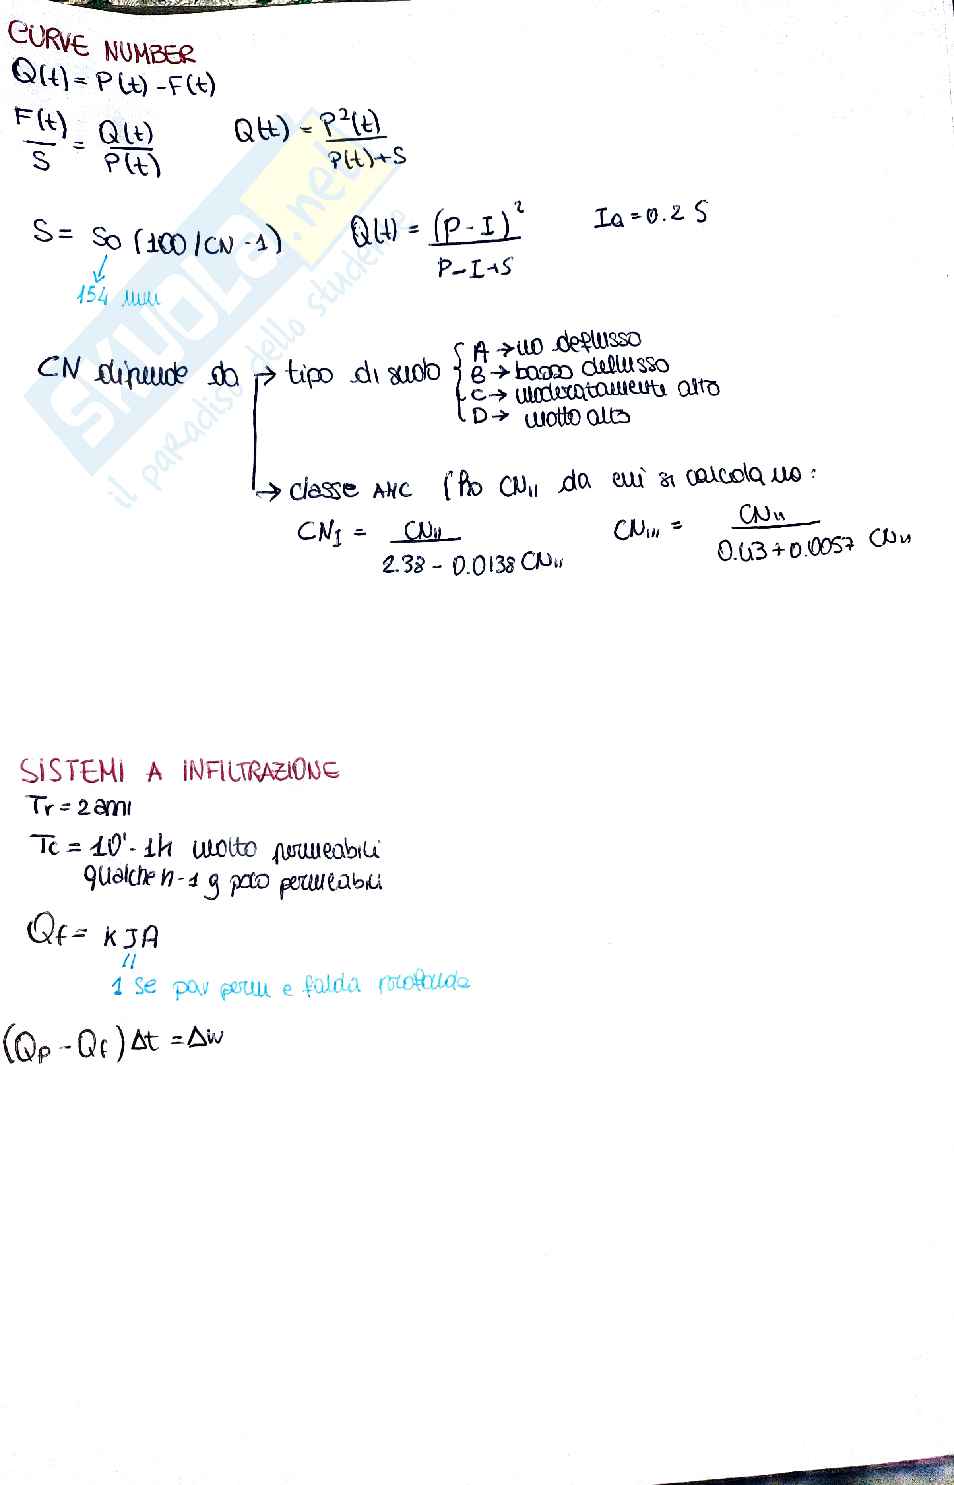 CURVE NUMBER
Q(t) = P(t) - F(t)
F(t)/S = Q(t)/P(t)   Q(t) = P²(t)/P(t)+S
S = So (100/CN - 1)   Q(t) = (P-I)²/P-I+S   Ia = 0.2 S
154 mm
CN dipende da → tipo di suolo { A → no deflusso
B → basso deflusso
C → moderatamente alto
D → molto alto
→ classe AMC (Ho CNII da cui si calcolano:
CNI = CNII/2.38 - 0.0138 CNII   CNIII = CNII/0.43 + 0.0057 CNII
SISTEMI A INFILTRAZIONE
Tr = 2 anni
Tc = 10' - 1h molto permeabili
qualche h - 1 g poco permeabili
Qf = K J A
1 se par perm e falda profonda
(Qp - Qf) Δt = Δw
SKUOLA.net
il paradiso dello studente